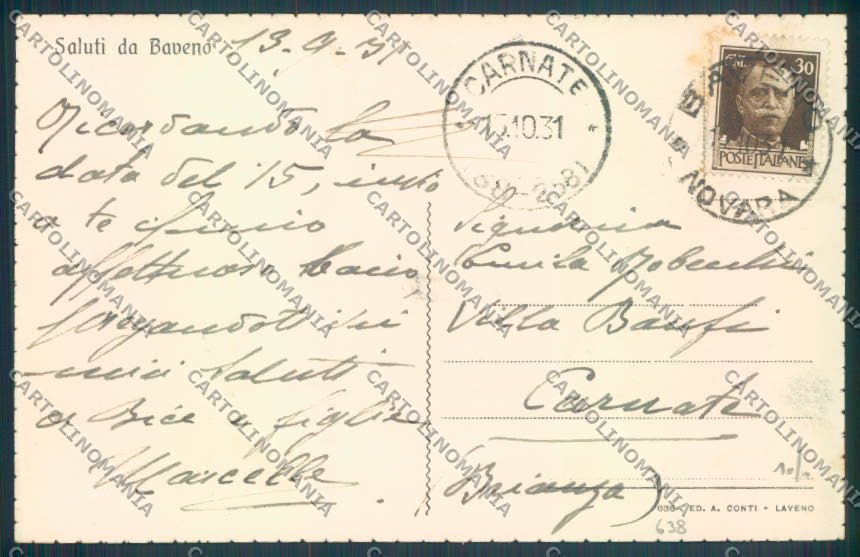 Saluti da Baveno 13.9.31
Ricordando la
data del 15, invio
a te
affettuosi baci,
porgandoti
miei saluti
a Bice e figlie
Marcella
CARNATE
13.10.31
30
POSTE ITALIANE
BAVENO
NOVARA
Signorina
Villa Banfi
Carnate
(Brianza)
638 - ED. A. CONTI - LAVENO
638
CARTOLINOMANIA